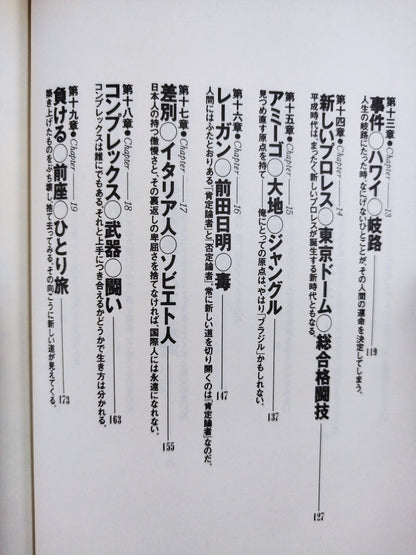 第十三章●Chapter—13
事件◯ハワイ◯岐路
人生の岐路にたった時、なにげないひとことが、その人間の運命を決定してしまう。
119
第十四章●Chapter—14
新しいプロレス◯東京ドーム◯総合格闘技
平成時代は、まったく新しいプロレスが誕生する新時代ともなる。
127
第十五章●Chapter—15
アミーゴ◯大地◯ジャングル
見つめ直す原点を持て——俺にとっての原点は、やはり「ブラジル」かもしれない。
137
第十六章●Chapter—16
レーガン◯前田日明◯毒
人間にはふたとおりある。「肯定論者」と「否定論者」。常に新しい道を切り開くのは、「肯定論者」なのだ。
147
第十七章●Chapter—17
差別◯イタリア人◯ソビエト人
日本人の持つ傲慢さと、その裏返しの卑屈さを捨てなければ、国際人には永遠になれない。
155
第十八章●Chapter—18
コンプレックス◯武器◯闘い
コンプレックスは誰にでもある。それと上手につき合えるかどうかで、生き方は分かれる。
163
第十九章●Chapter—19
負ける◯前座◯ひとり旅
築き上げたものをぶち壊し、捨て去ってみる。その向こうに新しい道が見えてくる。
173